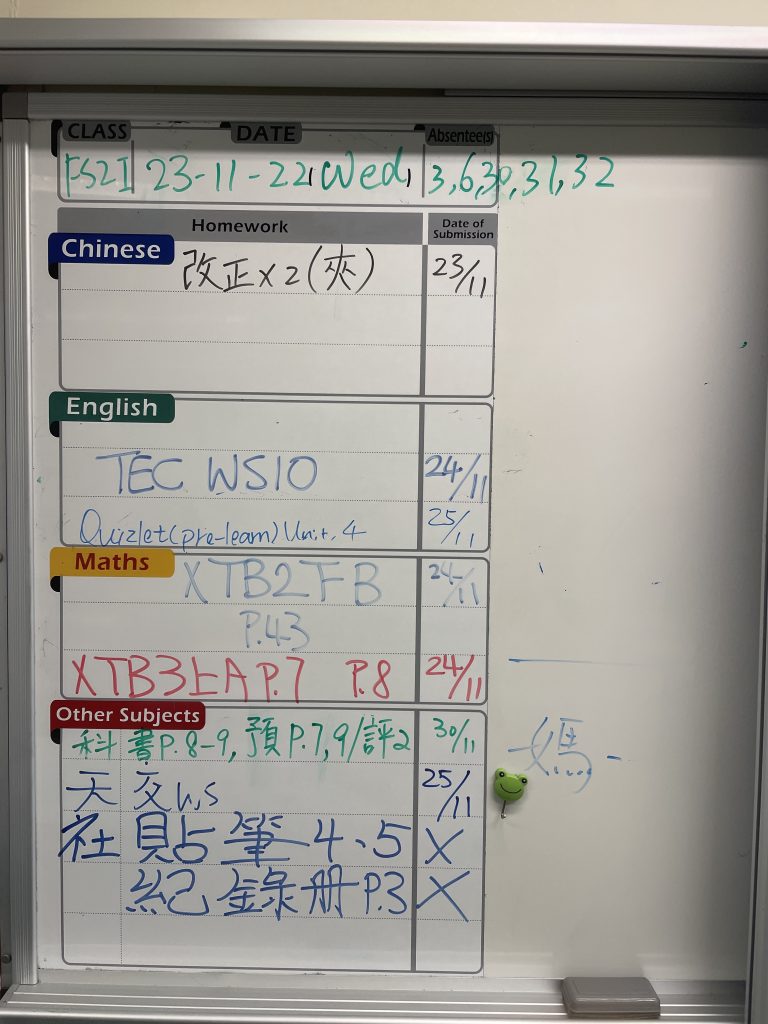 CLASS DATE Absentee(s)
FS2I 23-11-22(Wed) 3,6,30,31,32
Homework Date of Submission
Chinese
改正x2(夾) 23/11
English
TEC WS10 24/11
Quizlet(pre-learn) Unit. 4 25/11
Maths
XTB2下B 24/11
P.43
XTB3上A P.7 P.8 24/11
Other Subjects
科 書P.8-9, 預P.7,9/評2 30/11
天 交W,S 25/11
社 貼筆4、5 X
紀錄冊P.3 X
媽